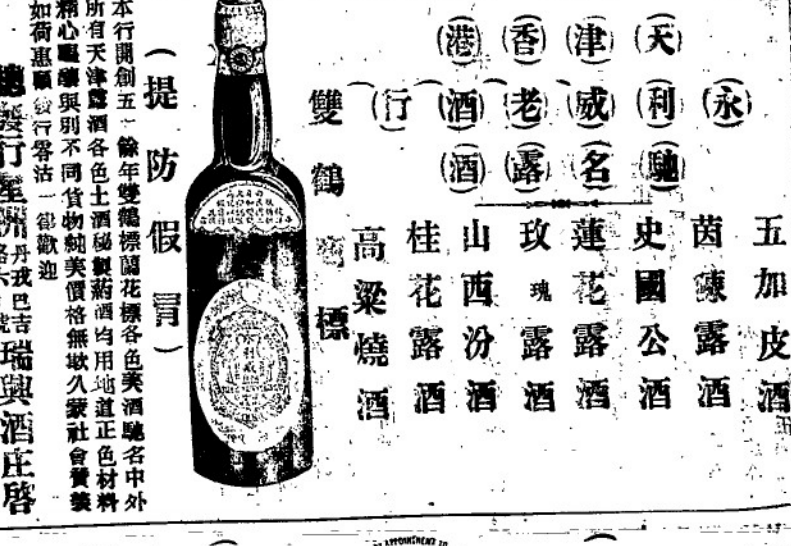 天津香港
永利威老酒行
馳名露酒
五加皮酒
茵陳露酒
史國公酒
蓮花露酒
玫瑰露酒
山西汾酒
桂花露酒
高粱燒酒
雙鶴標
(提防假冒)
本行開創五餘年雙鶴標蘭花標各色美酒馳名中外
所有天津露酒各色土酒秘製葯酒均用地道正色材料
精心釀與別不同貨物純美價格無欺久蒙社會贊
如荷惠顧發行零沽一歡迎
總發行星洲丹戎巴吉
路六號
瑞興酒庄啓
APPOINTMENT TO